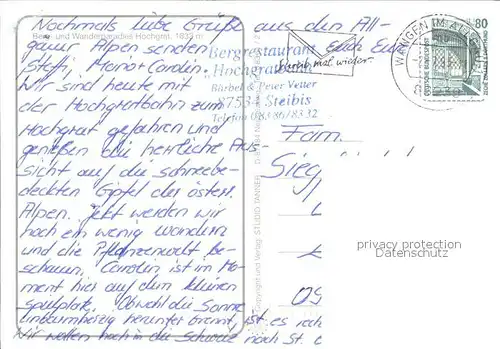 Nochmals liebe Grüße aus den All-
gäuer Alpen senden Euch
Steffi, Mario + Carolin.
Wir sind heute mit
der Hochgratbahn zum
Hochgrat gefahren und
genießen die herrliche Aus-
sicht auf die schneebe-
deckten Gipfel der österr.
Alpen. Jetzt werden wir
noch ein wenig wandern
und die Pflanzenwelt be-
schauen. Carolin ist im Mo-
ment hier auf dem kleinen
Spielplatz. Obwohl die Sonne
unbarmherzig herunter brennt, ist es
Wir wollen noch in die Schweiz nach St.
Berg- und Wanderparadies Hochgrat, 1833 m
Bergrestaurant
Hochgratbahn
Bärbel & Peter Vetter
87534 Steibis
Telefon 08386/8332
schreib mal wieder
WANGEN IM ALLGÄU
80
DEUTSCHE BUNDESPOST
Fam.
Sieg
Copyright und Verlag: STUDIO TANNER
privacy protection
AnsichtskartenVersand.com